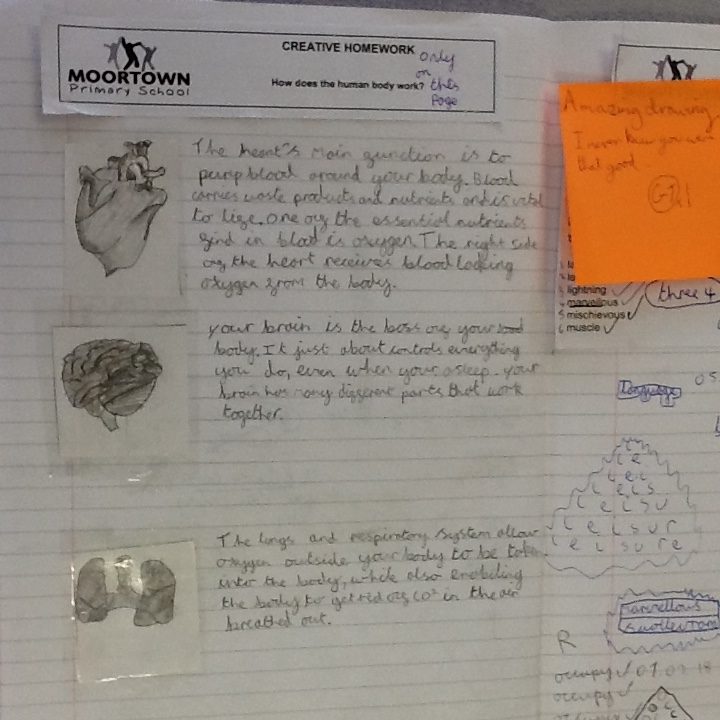 CREATIVE HOMEWORK
How does the human body work?
only
on
this
Page
MOORTOWN
Primary School
The heart's main function is to
pump blood around your body. Blood
carries waste products and nutrients and is vital
to life. One of the essential nutrients
find in blood is oxygen. The right side
of the heart receives blood lacking
oxygen from the body.
Your brain is the boss of your
body. It just about controls everything
you do, even when your asleep. Your
brain has many different parts that work
together.
The lungs and respiratory system allow
oxygen outside your body to be taken
into the body, while also enabeling
the body to get rid of CO² in the air
breathed out.
Amazing drawing
I never knew you were
that good
lightning
marvellous
mischievous
muscle
three 4
language
L
L e
L e i
L e i s
L e i s u
L e i s u r
L e i s u r e
marvellous
R
occupy
occupy